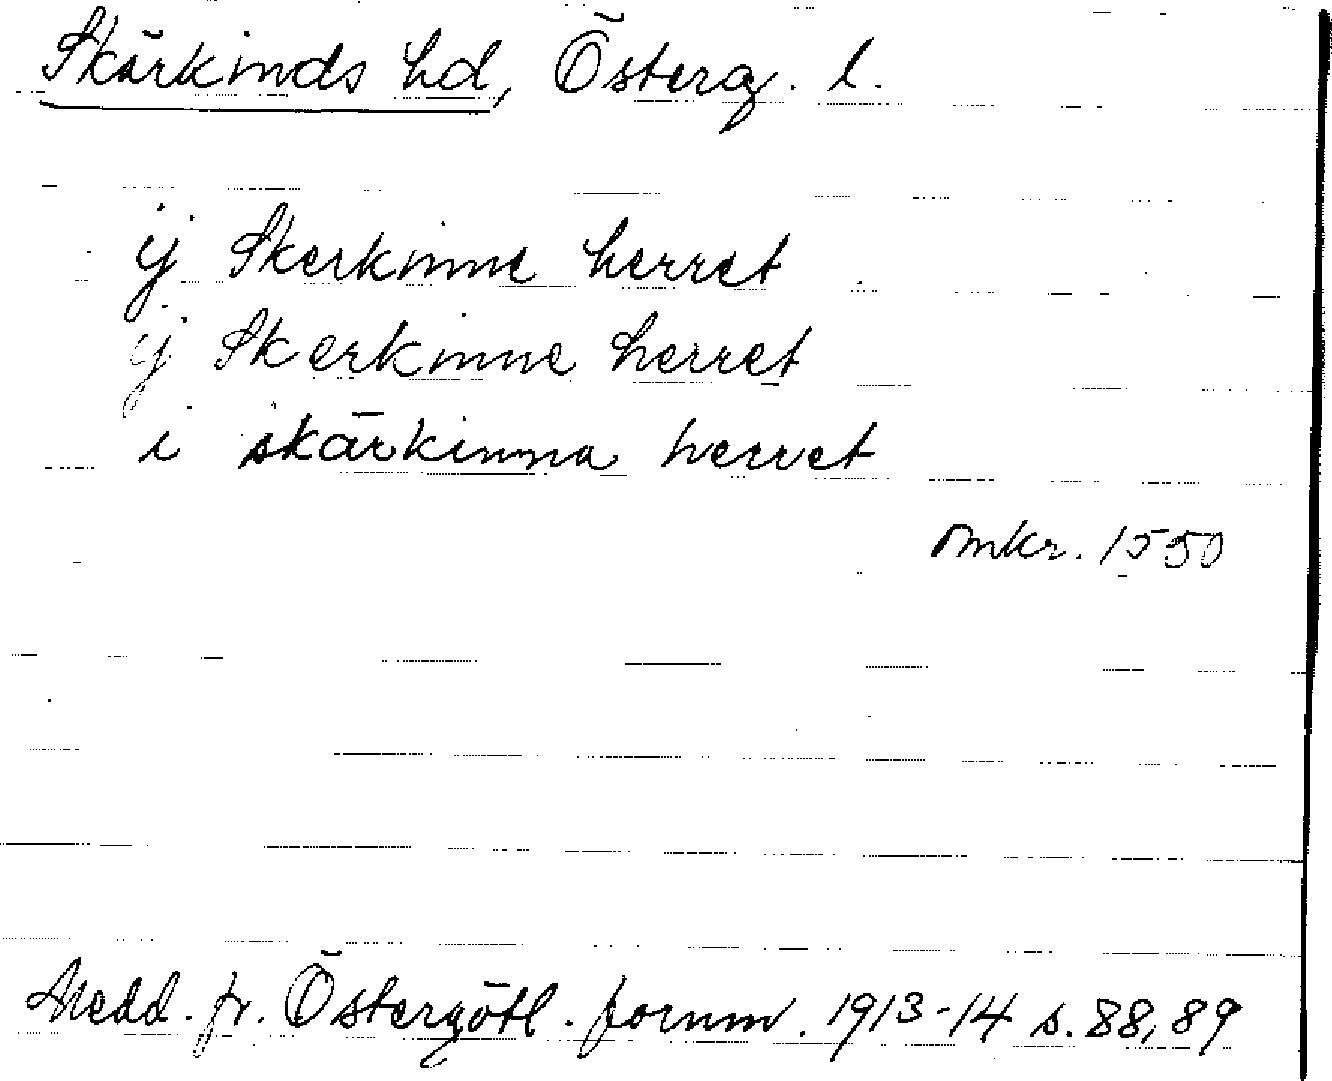 Skärkinds hd, Österg. l.
ij Skerkinne herret
ij Skerkinne herret
i skärkinna herret
Omkr. 1550
Medd. fr. Östergötl. fornm. 1913-14 s. 88, 89